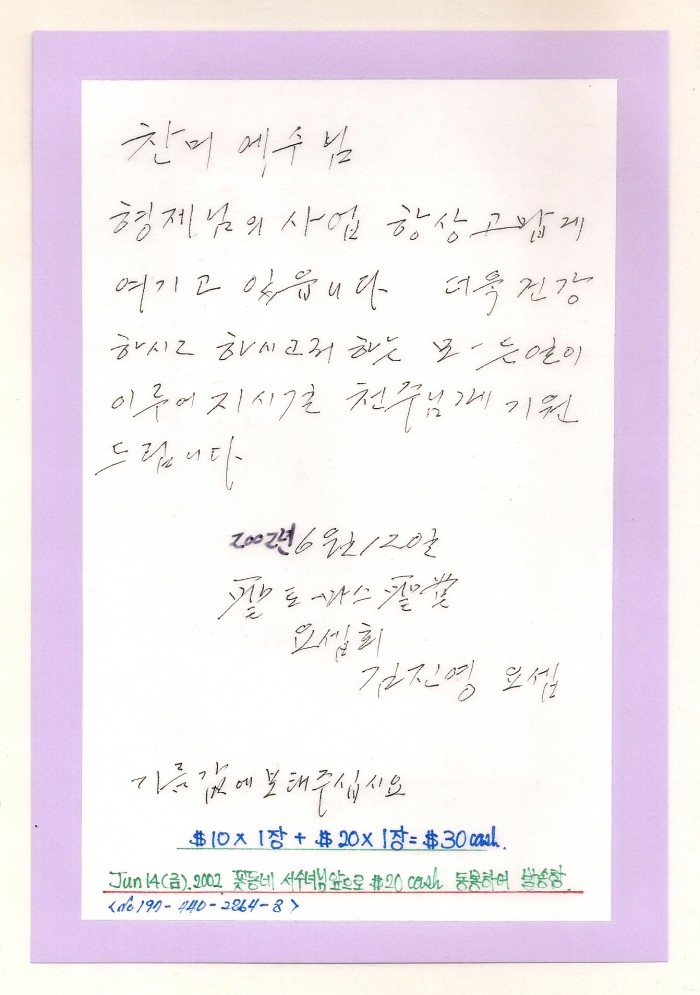 찬미 예수님
형제님의 사업 항상 고맙게
여기고 있읍니다 더욱 건강
하시고 하시고저 하는 모-든일이
이루어 지시기를 천주님께 기원
드립니다
2002년 6월 12일
聖 토-마스 聖堂
요셉회
김진영 요셉
기름값에 보태주십시요
$10 x 1장 + $20 x 1장 = $30 cash.
Jun 14(금). 2002 꽃동네 서수녀님 앞으로 $20 cash 동봉하여 발송함.
190-440-2864-8 >